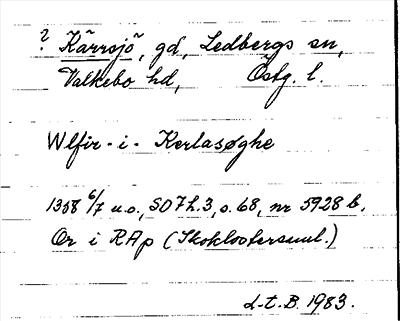 ? Kärrsjö, gd, Ledbergs sn,
Valkebo hd, Östg. l.
Wlfir - i - Kerlasøghe
1358 6/7 u.o., SD 7h.3, s. 68, nr 5928 b.
Or i RAp (Skoklostersaml.)
L.t.B 1983.